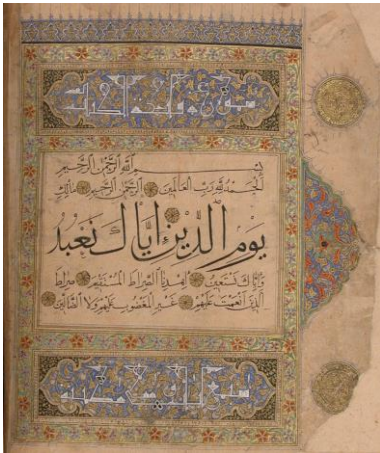 بسم الله الرحمن الرحيم
الحمد لله رب العالمين الرحمن الرحيم مالك
يوم الدين إياك نعبد
وإياك نستعين اهدنا الصراط المستقيم صراط
الذين أنعمت عليهم غير المغضوب عليهم ولا الضالين